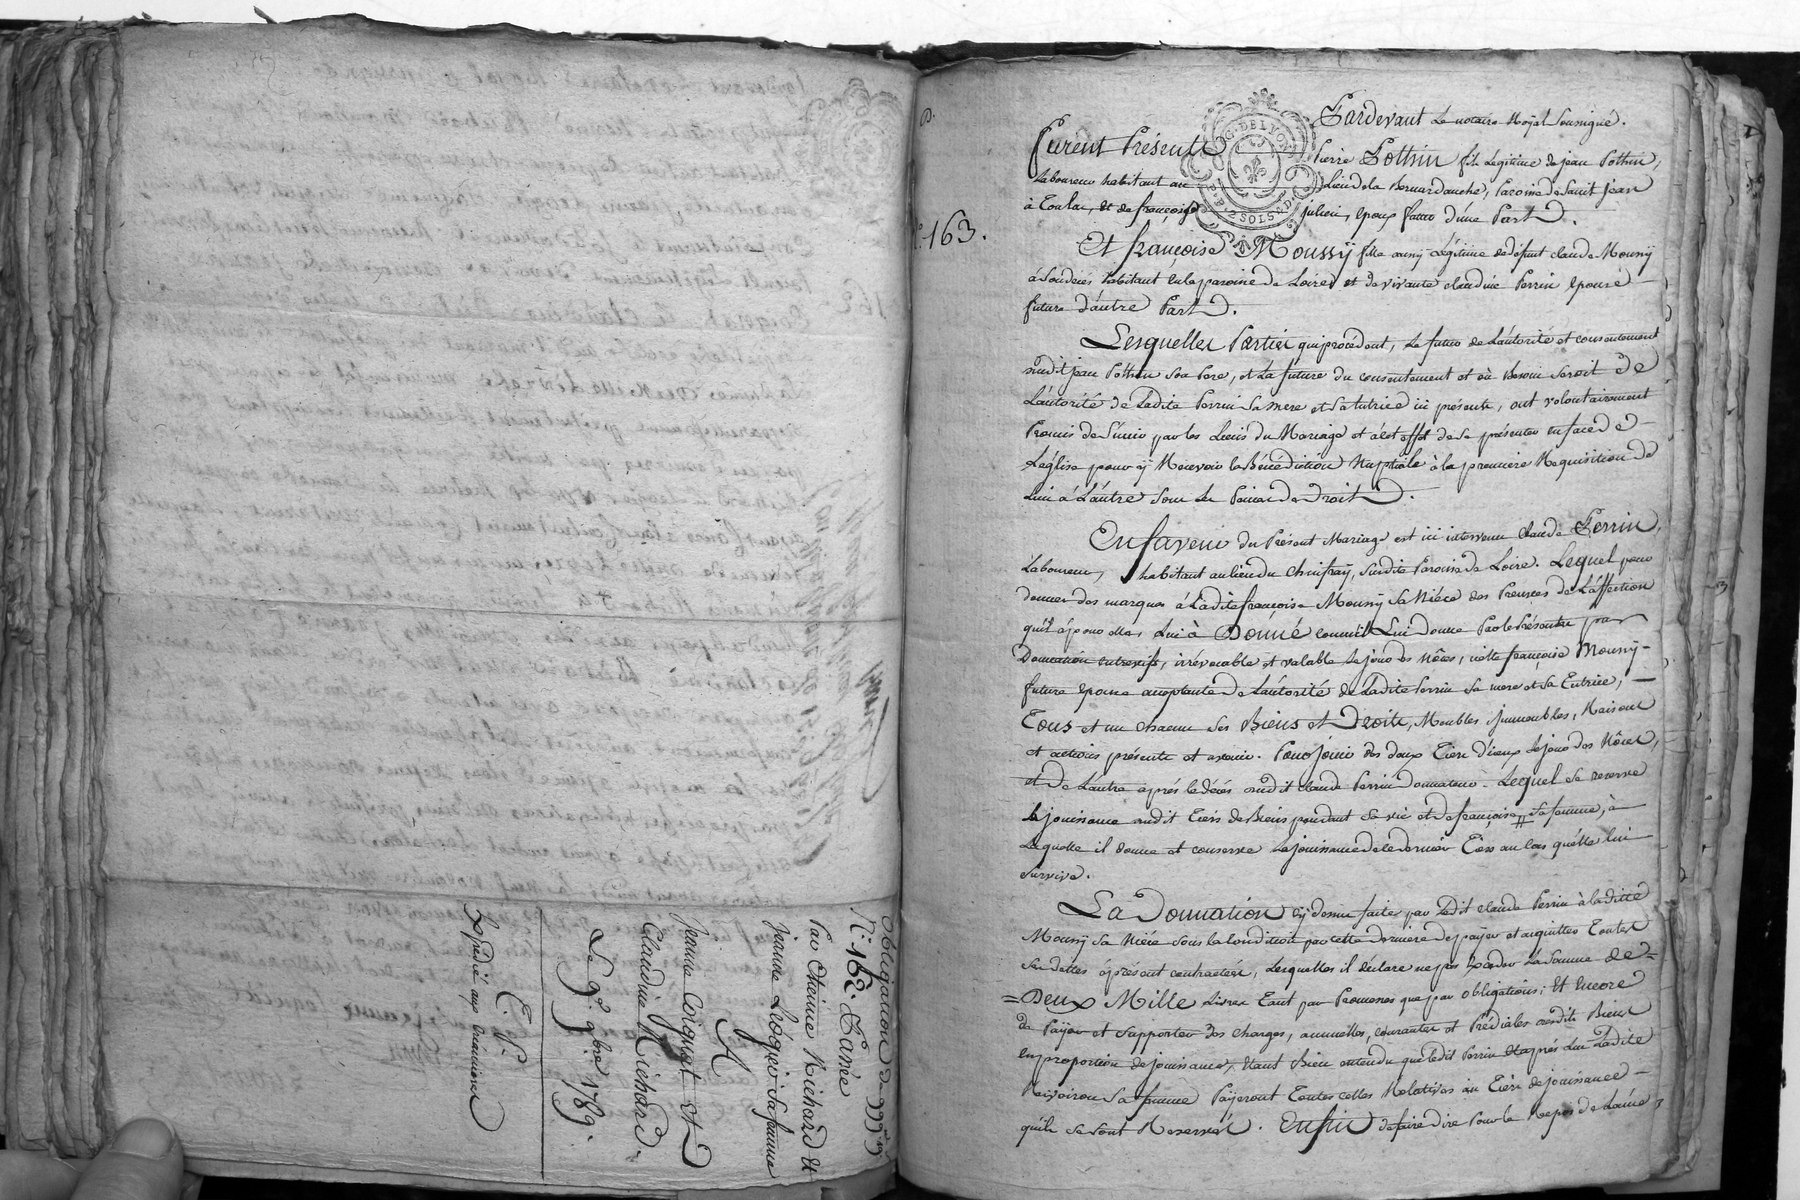 Obligation de 999ᵗᵗ
N.° 162. Passée
Par Etienne Richard et
jeanne Lecquer sa femme
A
Jeanne Coignat et
Claudine Richard.
Le 9e. 9bre 1789.
C. P.
Expédié aux creancieres
P.
N.° 163.
Pardevant Le notaire Royal soussigné.
furent Présents
G. DE LYON
2 SOLS 2 D.
Pierre Pothin fils Legitime de jean Pothin,
Laboureur habitant au Lieu de la Bernardanche, Paroisse de Saint jean
à Toulas, et de françoise julien, epoux futur d'une Part.
Et françoise Moussÿ fille aussÿ Légitime de defunt claude Moussÿ
habitant en la paroisse de Loire et de vivante claudine Perrin epouse
future d'autre Part.
Lesquelles Parties qui procédent, Le futur de L'autorité et consentement
dudit jean Pothin son Pere, et La future du consentement et où Besoin Seroit de
L'autorité de Ladite Perrin Sa mere et Sa tutrice ici présente, ont volontairement
Promis de S'unir par les Liens du Mariage et à cet effet de se présenter en face de
L'église pour ÿ Recevoir la Bénédiction Nuptiale à la premiere Requisition de
L'un à L'autre sous les Peines de Droit.
En faveur du Présent Mariage est ici intervenu claude Perrin,
Laboureur, habitant au lieu du susdite Paroisse de Loire. Lequel pour
donner des marques à Ladite françoise Moussÿ sa Niéce des Preuves de L'affection
qu'il à pour elle Lui à Donné comm'il Lui Donne Par le Présent par
Donnation entrevifs, irrévocable et valable Le jour des Nôces, icelle françoise Moussÿ
future epouse acceptante de L'autorité de Ladite Perrin sa mere et Sa Tutrice,
Tous et un chacun ses Biens et Droits, Meubles, immeubles, Raisons
et actions présents et avenir. Pour jouir des deux Tiers d'iceux Le jour des Nôces,
et de L'autre après le décés dudit claude Perrin Donnateur. Lequel se reserve
la jouissance dudit Tiers de Biens pendant Sa vie et de françoise sa femme, à
Laquelle il donne et conserve La jouissance de ce dernier Tiers au Cas qu'elle lui
survive.
La Donnation cÿ dessus faite par Ledit claude Perrin à ladite
Moussÿ sa Niéce sous la condition par cette derniere de paÿer et acquitter Toutes
Ses dettes àprésent contractées, Lesquelles il déclare ne pas Exceder La somme de
Deux Mille Livres Tant par Promesses que par obligations; Et encore
de Paÿer et Supporter Les charges, annuelles, courantes et Prédiales desdits Biens
en proportion de jouissance, Etant Bien entendu que Ledit Perrin et après Lui Ladite
Sa femme Paÿeront Toutes celles Relatives au Tiers de jouissance
qu'ils se sont Reservés. Enfin de faire dire Pour le Repos de L'ame